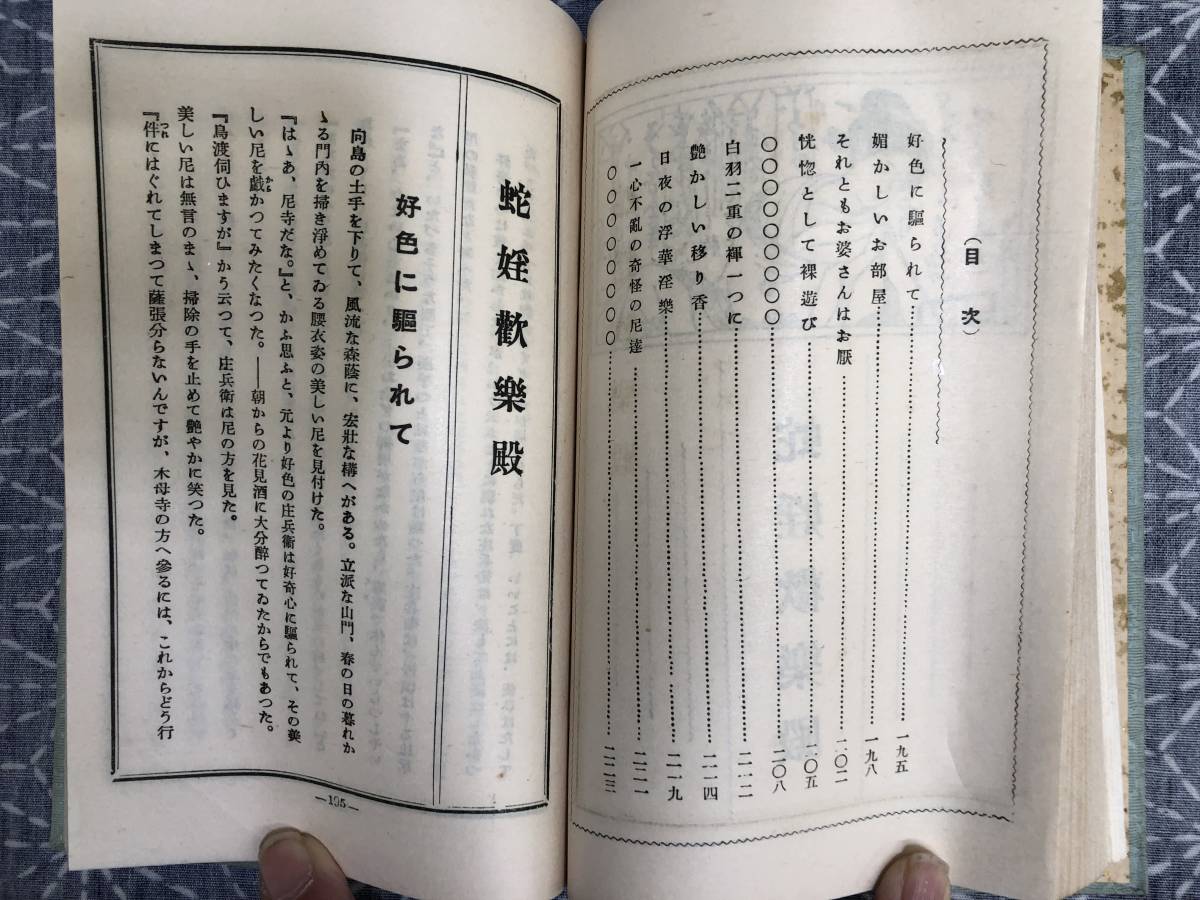 (目次)
好色に驅られて……一九五
媚かしいお部屋……一九八
それともお婆さんはお厭……二〇二
恍惚として裸遊び……二〇五
〇〇〇〇〇〇〇〇……二〇八
白羽二重の褌一つに……二一二
艶かしい移り香……二一四
日夜の浮華淫樂……二一九
一心不亂の奇怪の尼達……二二一
〇〇〇〇〇〇〇……二二三
蛇婬歡樂殿
好色に驅られて
向島の土手を下りて、風流な森蔭に、宏壯な構へがある。立派な山門、春の日の暮れか
ゝる門內を掃き淨めてゐる腰衣姿の美しい尼を見付けた。
『はゝあ、尼寺だな。』と、かふ思ふと、元より好色の庄兵衞は好奇心に驅られて、その美
しい尼を戲かつてみたくなつた。――朝からの花見酒に大分醉つてゐたからでもあつた。
『鳥渡伺ひますが』かう云つて、庄兵衞は尼の方を見た。
美しい尼は無言のまゝ、掃除の手を止めて艶やかに笑つた。
『伴にはぐれてしまつて薩張分らないんですが、木母寺の方へ參るには、これからどう行
—195—